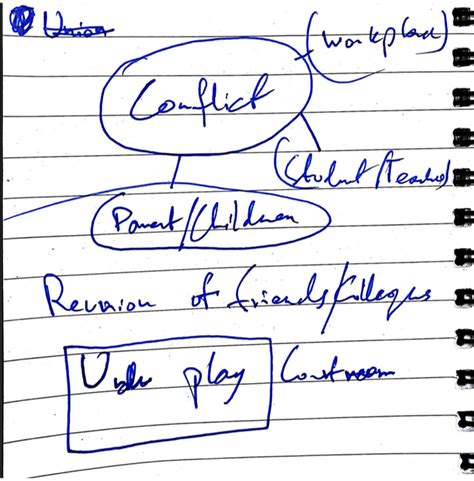 Union
(Workplace)
Conflict
(Student/Teacher)
Parent/Children
Reunion of friends/Collegues
play Courtroom